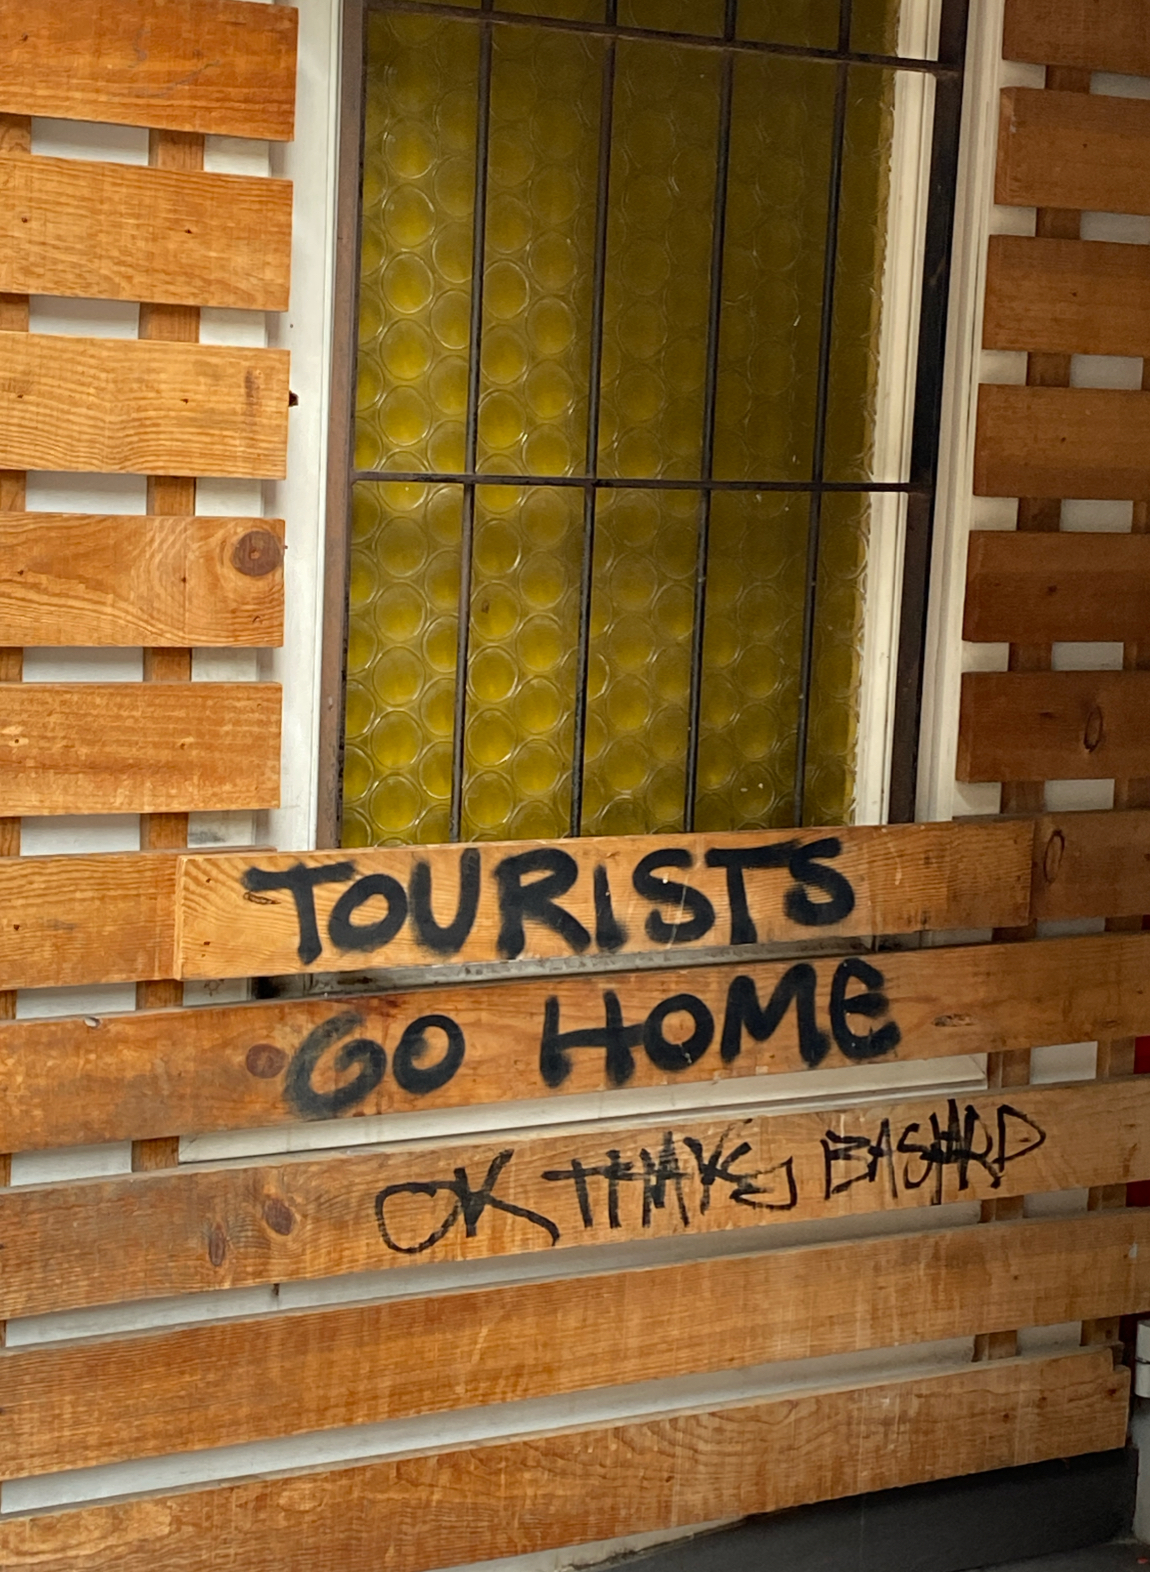 TOURISTS
GO HOME
OK THAKS BASTARD